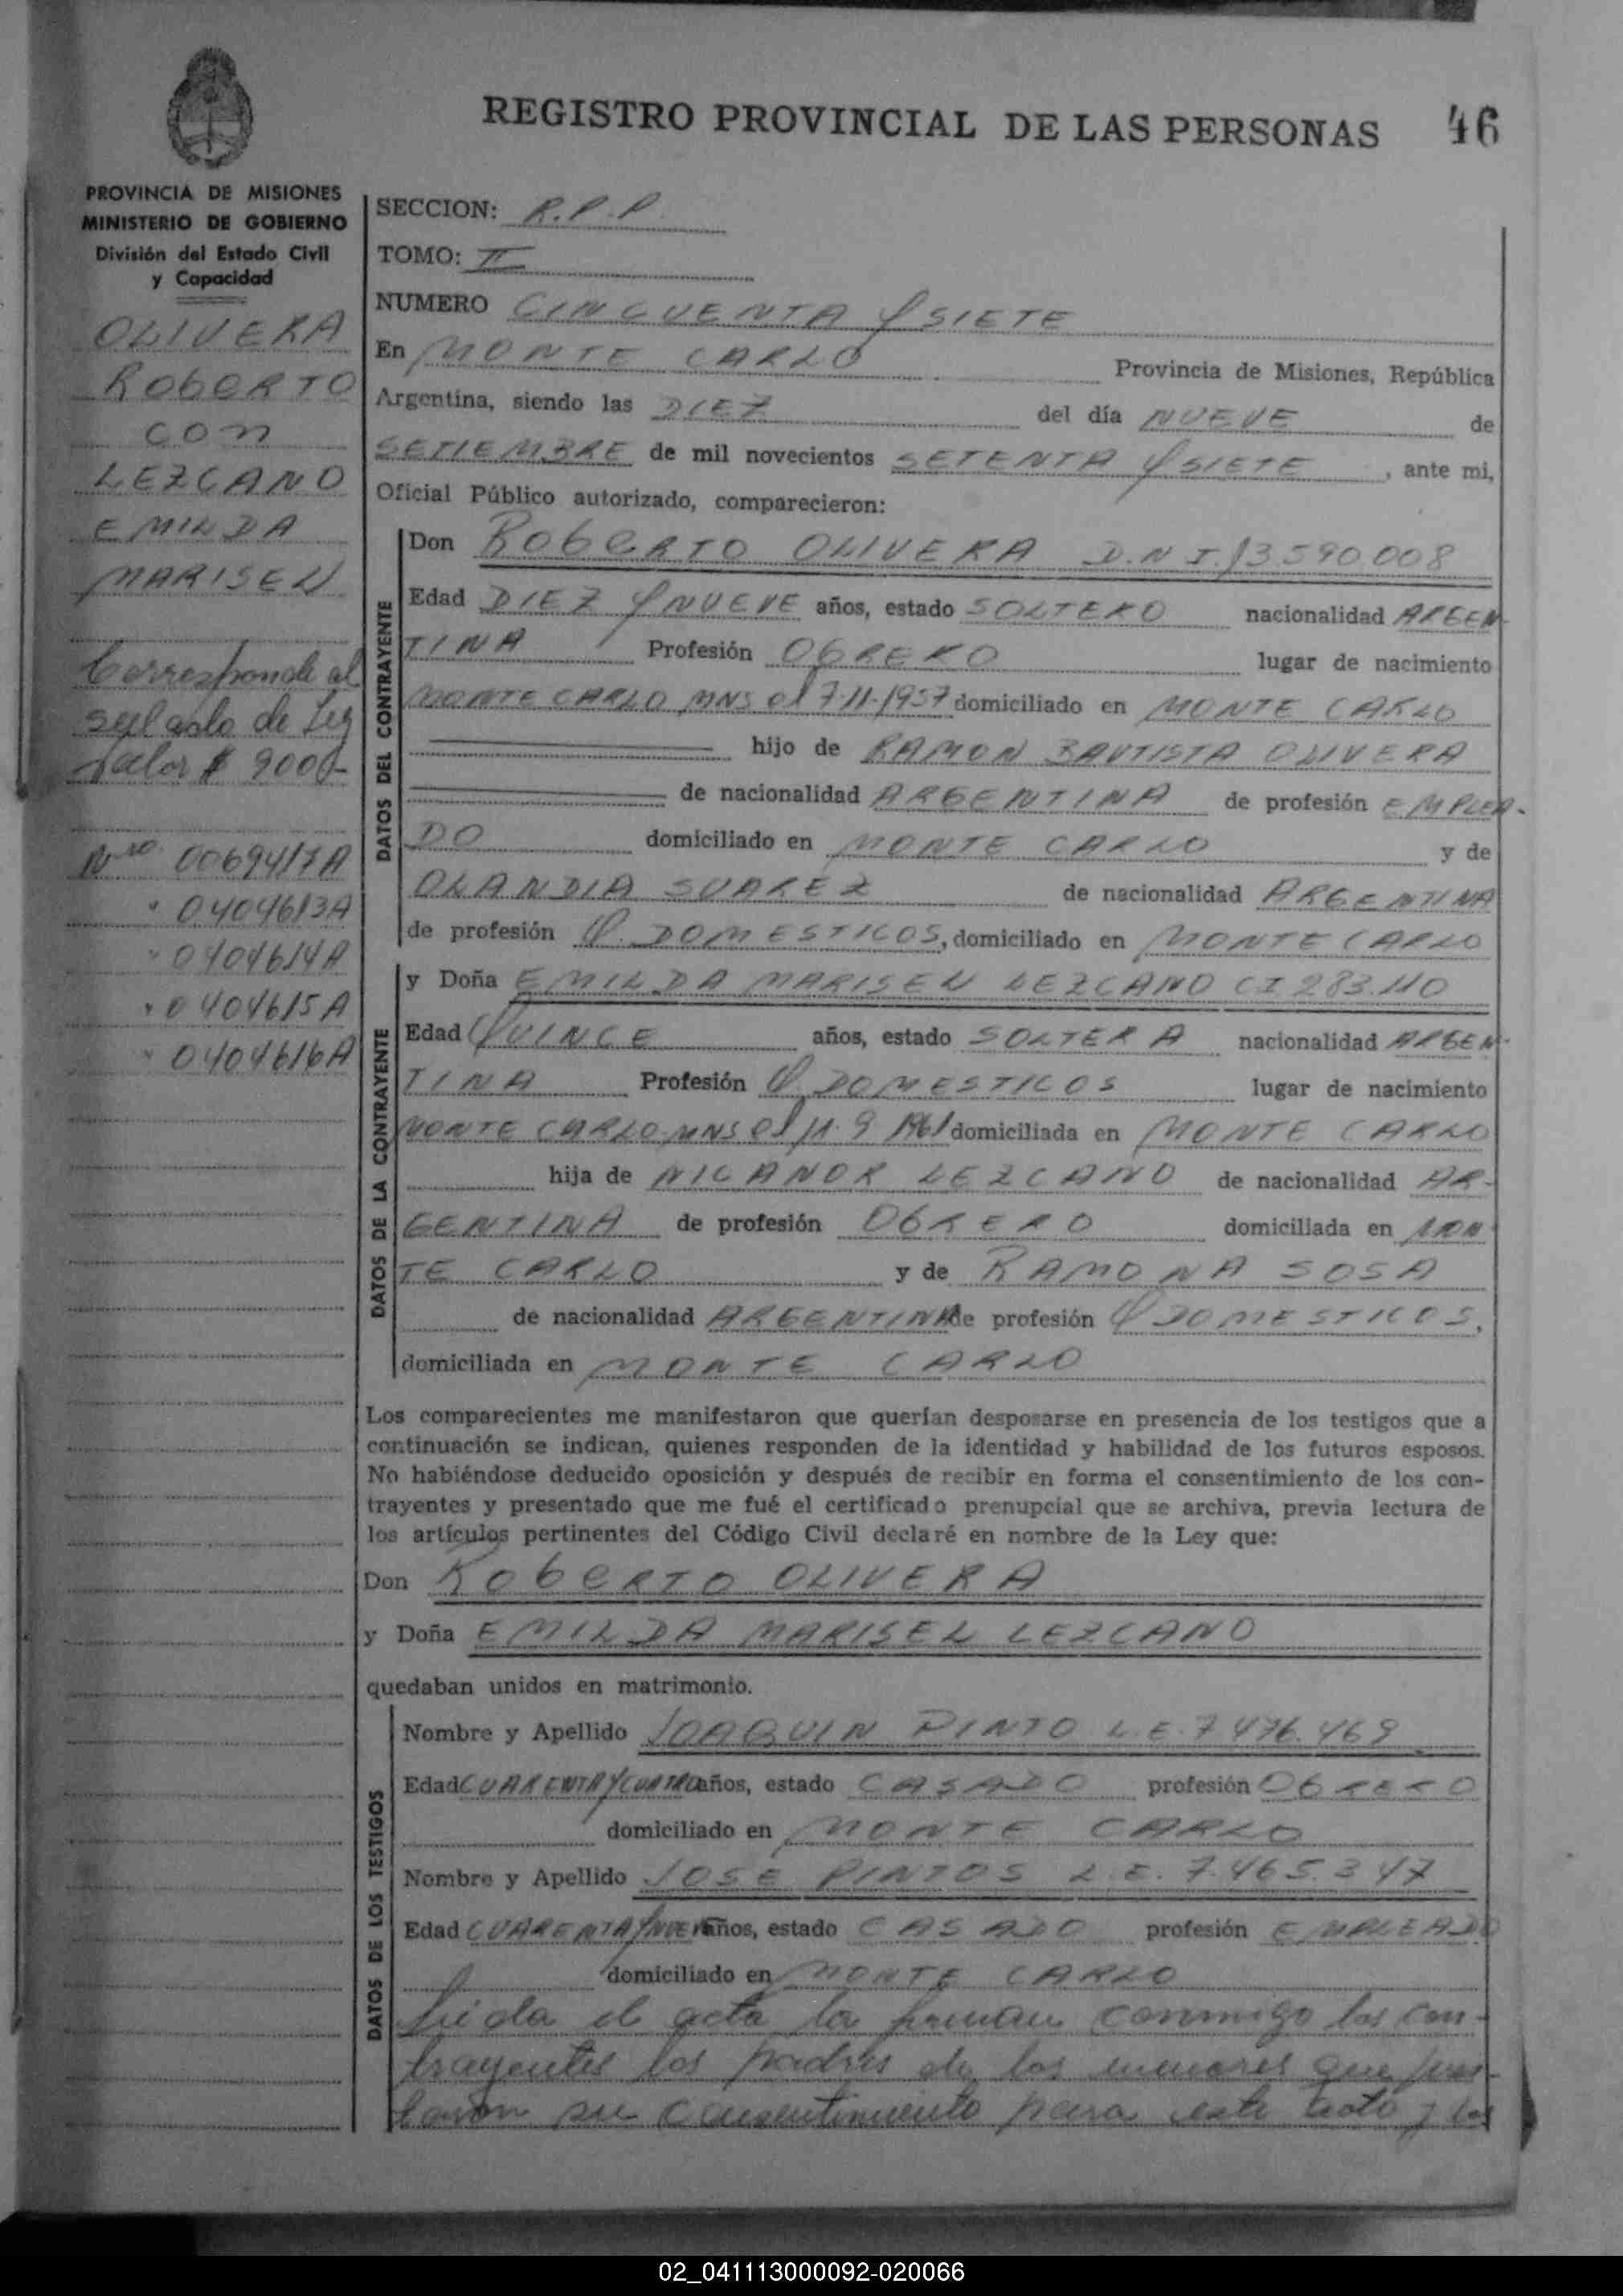 REGISTRO PROVINCIAL DE LAS PERSONAS 46
PROVINCIA DE MISIONES
MINISTERIO DE GOBIERNO
División del Estado Civil
y Capacidad
OLIVERA
ROBERTO
CON
LEZCANO
EMILDA
MARISEL
Corresponde al
sellado de Ley
Valor $ 900-
Nro 0069417A
" 0404613A
" 0404614A
" 0404615A
" 0404616A
SECCION: R.P.P
TOMO: II
NUMERO CINCUENTA Y SIETE
En MONTE CARLO Provincia de Misiones, República
Argentina, siendo las DIEZ del día NUEVE de
SETIEMBRE de mil novecientos SETENTA Y SIETE, ante mi,
Oficial Público autorizado, comparecieron:
DATOS DEL CONTRAYENTE
Don ROBERTO OLIVERA D.N.I. 13.590.008
Edad DIEZ Y NUEVE años, estado SOLTERO nacionalidad ARGEN-
TINA Profesión OBRERO lugar de nacimiento
MONTE CARLO MNS el 7-11-1957 domiciliado en MONTE CARLO
hijo de RAMON BAUTISTA OLIVERA
de nacionalidad ARGENTINA de profesión EMPLEA-
DO domiciliado en MONTE CARLO y de
OLANDIA SUAREZ de nacionalidad ARGENTINA
de profesión Q. DOMESTICOS, domiciliado en MONTE CARLO
DATOS DE LA CONTRAYENTE
y Doña EMILDA MARISEL LEZCANO C I 283.110
Edad QUINCE años, estado SOLTERA nacionalidad ARGEN-
TINA Profesión Q. DOMESTICOS lugar de nacimiento
MONTE CARLO-MNS el 11-9 1961 domiciliada en MONTE CARLO
hija de NICANOR LEZCANO de nacionalidad AR-
GENTINA de profesión OBRERO domiciliada en MON
TE CARLO y de RAMONA SOSA
de nacionalidad ARGENTINA de profesión Q DOMESTICOS,
domiciliada en MONTE CARLO
Los comparecientes me manifestaron que querían desposarse en presencia de los testigos que a
continuación se indican, quienes responden de la identidad y habilidad de los futuros esposos.
No habiéndose deducido oposición y después de recibir en forma el consentimiento de los con-
trayentes y presentado que me fué el certificado prenupcial que se archiva, previa lectura de
los artículos pertinentes del Código Civil declaré en nombre de la Ley que:
Don ROBERTO OLIVERA
y Doña EMILDA MARISEL LEZCANO
quedaban unidos en matrimonio.
DATOS DE LOS TESTIGOS
Nombre y Apellido JOAQUIN PINTO L.E. 7.476.469
Edad CUARENTA Y CUATRO años, estado CASADO profesión OBRERO
domiciliado en MONTE CARLO
Nombre y Apellido JOSE PINTOS L.E. 7.465.347
Edad CUARENTA Y NUEVE años, estado CASADO profesión EMPLEADO
domiciliado en MONTE CARLO
Leida el acta la firman conmigo los con-
trayentes los padres de los menores que pres-
taron su consentimiento para este acto y los
02_041113000092-020066